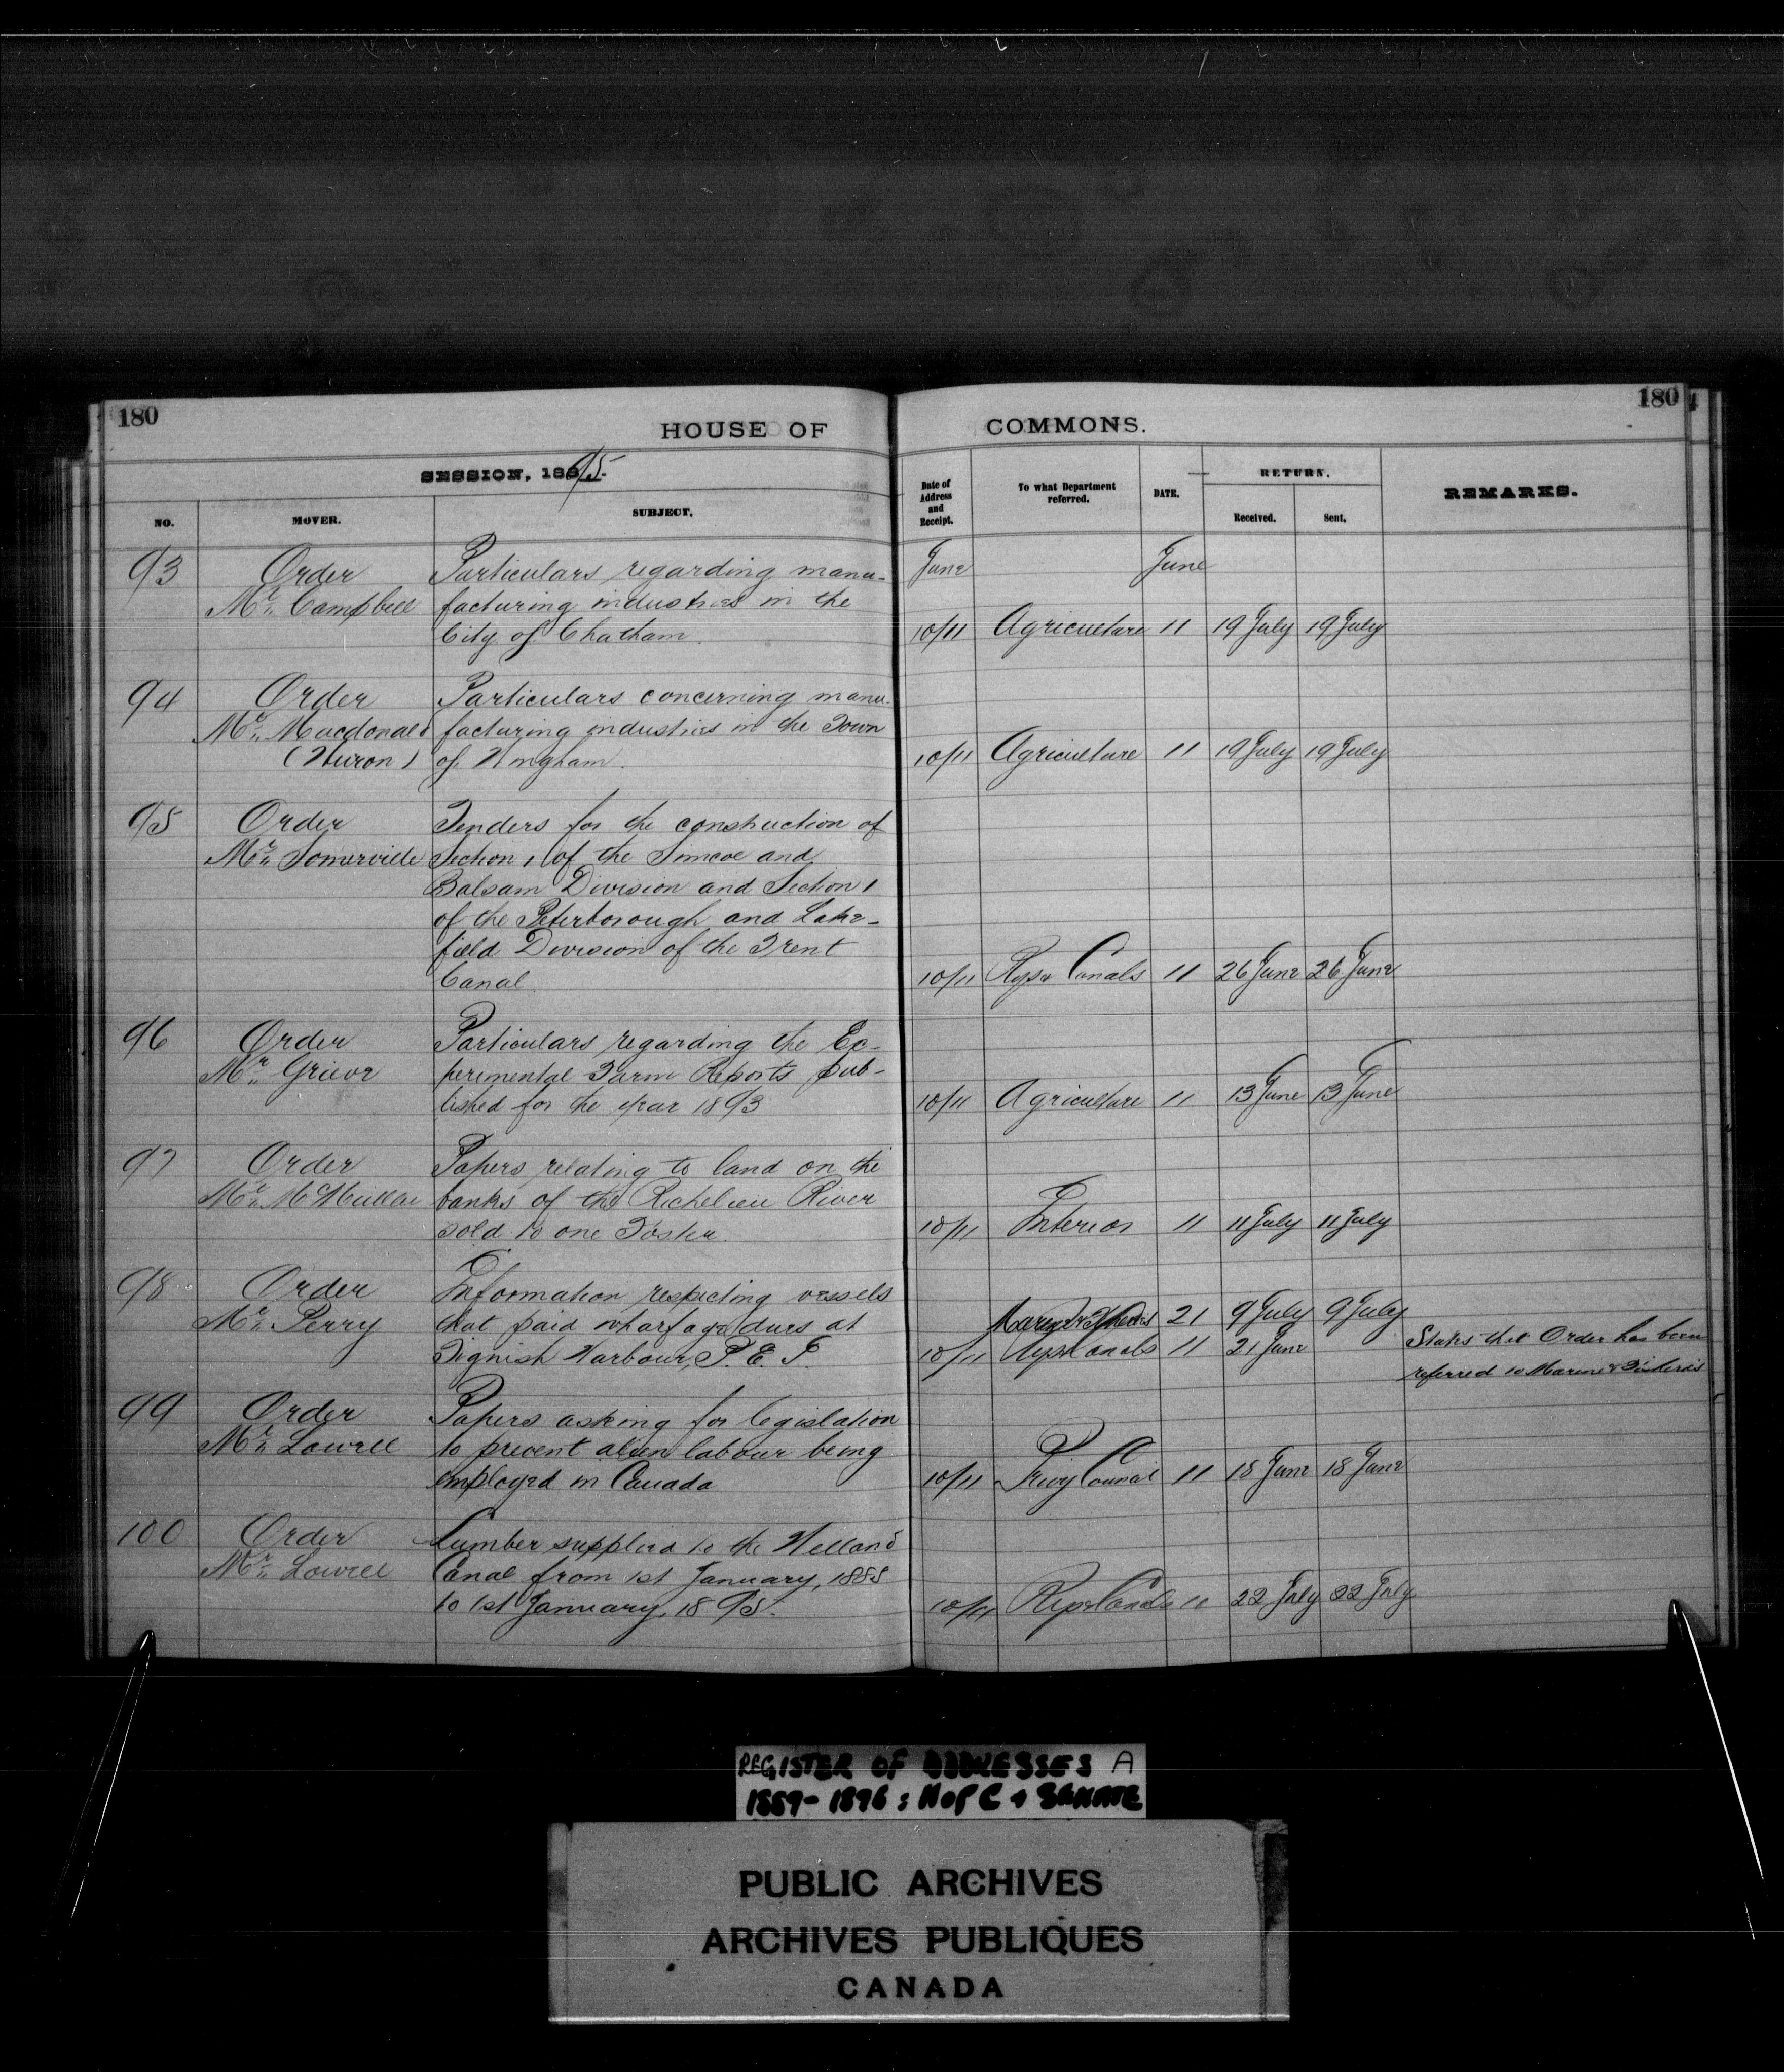 180
180
HOUSE OF COMMONS.
SESSION, 1895.
NO. MOVER. SUBJECT. Date of Address and Receipt. To what Department referred. DATE. RETURN. Received. Sent. REMARKS.
93 Order Particulars regarding manu- June June
Mr. Campbell facturing industries in the
City of Chatham. 10/11 Agriculture 11 19 July 19 July
94 Order Particulars concerning manu-
Mr. Macdonald facturing industries in the Town
(Huron) of Wingham. 10/11 Agriculture 11 19 July 19 July
95 Order Tenders for the construction of
Mr. Somerville Section 1 of the Simcoe and
Balsam Division and Section 1
of the Peterborough and Lake-
field Division of the Trent
Canal 10/11 Rys & Canals 11 26 June 26 June
96 Order Particulars regarding the Ex-
Mr. Grieve perimental Farm Reports pub-
lished for the year 1893 10/11 Agriculture 11 13 June 13 June
97 Order Papers relating to land on the
Mr. McMullen banks of the Richelieu River
sold to one Foster. 10/11 Interior 11 11 July 11 July
98 Order Information respecting vessels
Mr. Perry that paid wharfage dues at Marine & Fisheries 21 9 July 9 July
Tignish Harbour, P. E. I. 10/11 Rys & Canals 11 21 June States that Order has been
referred to Marine & Fisheries
99 Order Papers asking for legislation
Mr. Lowell to prevent alien labour being
employed in Canada 10/11 Privy Council 11 18 June 18 June
100 Order Lumber supplied to the Welland
Mr. Lowell Canal from 1st January, 1885
to 1st January, 1895. 10/11 Rys & Canals 11 22 July 22 July
REGISTER OF ADDRESSES A
1889-1896: H OF C + SENATE
PUBLIC ARCHIVES
ARCHIVES PUBLIQUES
CANADA